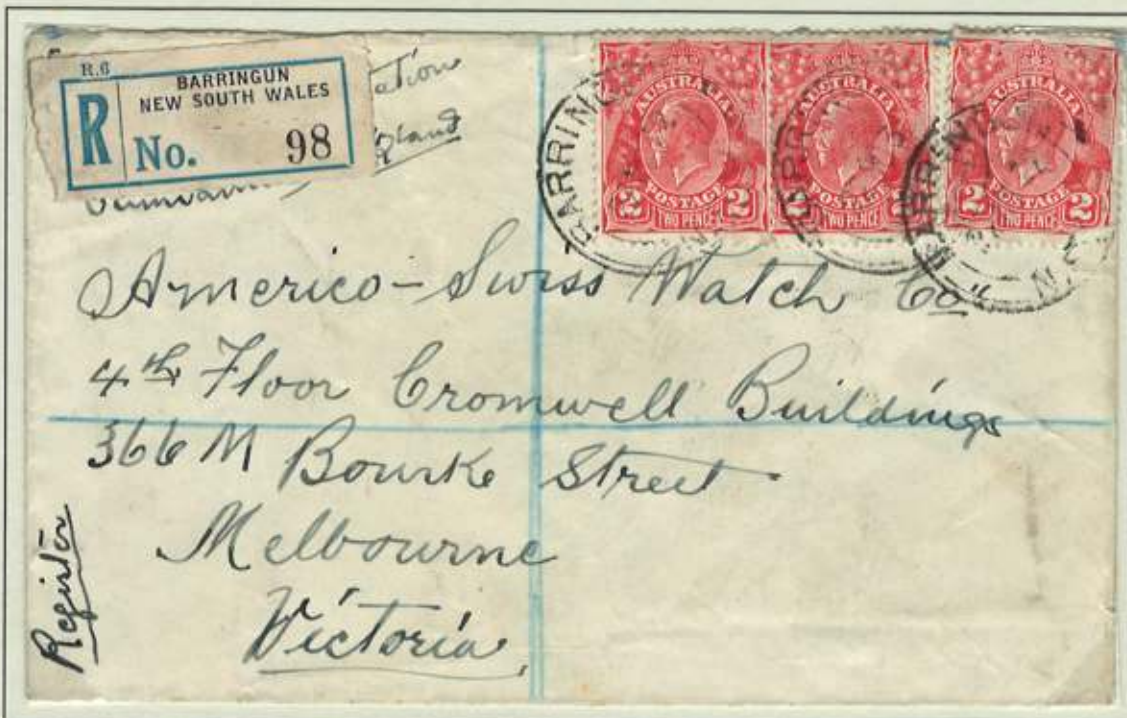 R.6
BARRINGUN
NEW SOUTH WALES
R No. 98
AUSTRALIA
POSTAGE
2 TWO PENCE 2
AUSTRALIA
POSTAGE
2 TWO PENCE 2
AUSTRALIA
POSTAGE
2 TWO PENCE 2
Americo-Swiss Watch Co
4th Floor Cromwell Buildings
366 M Bourke Street
Melbourne
Victoria
Register